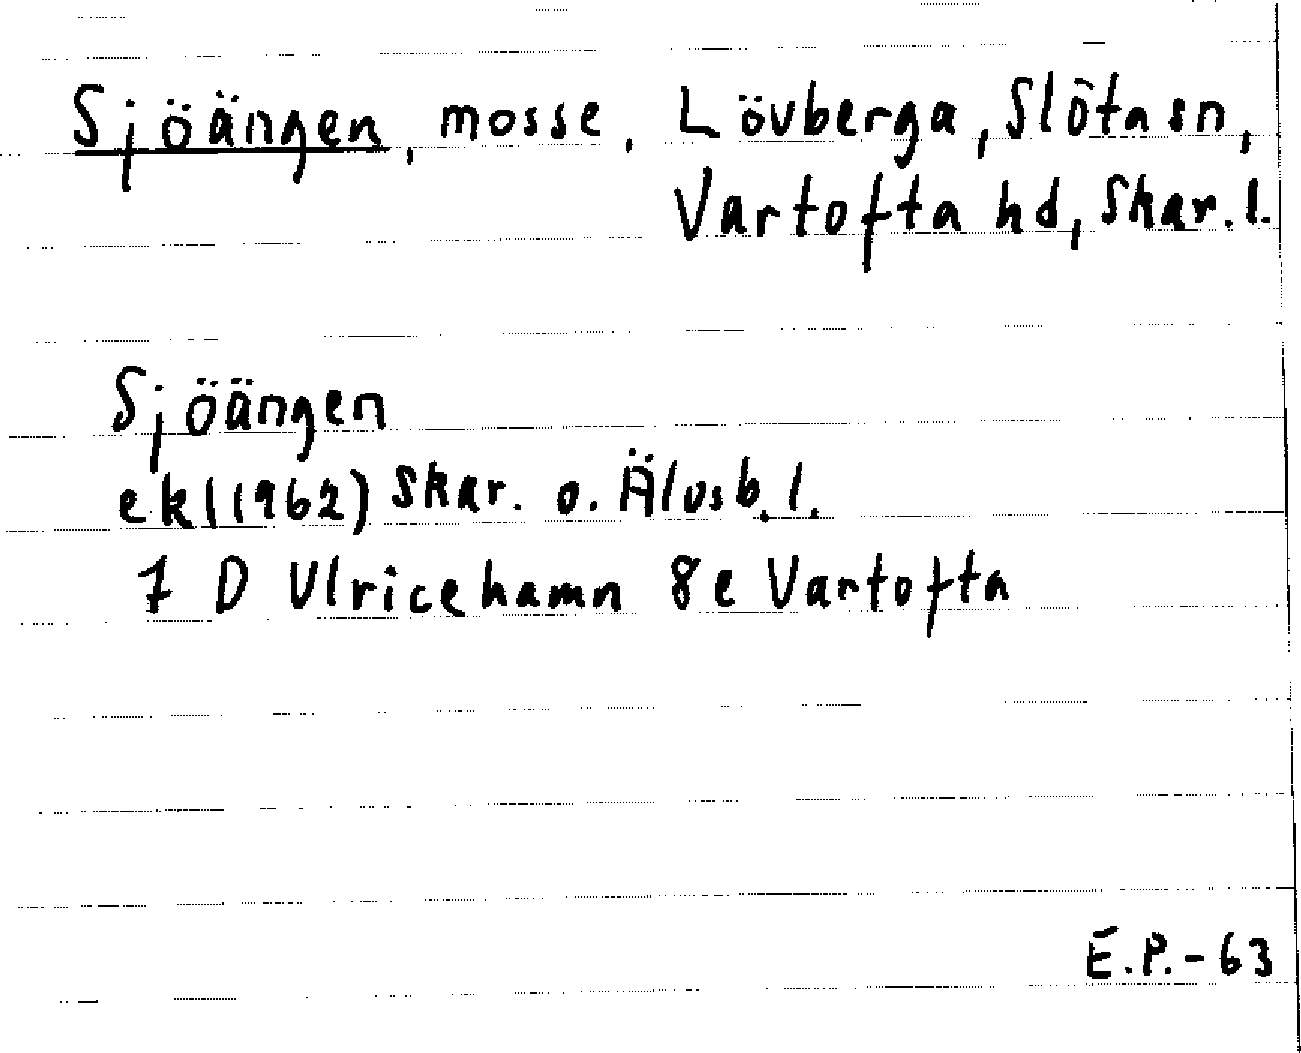 Sjöängen, mosse, Lövberga, Slöta sn,
Vartofta hd, Skar. l.
Sjöängen
ek (1962) Skar. o. Älvsb. l.
7 D Ulricehamn 8e Vartofta
E.P.-63